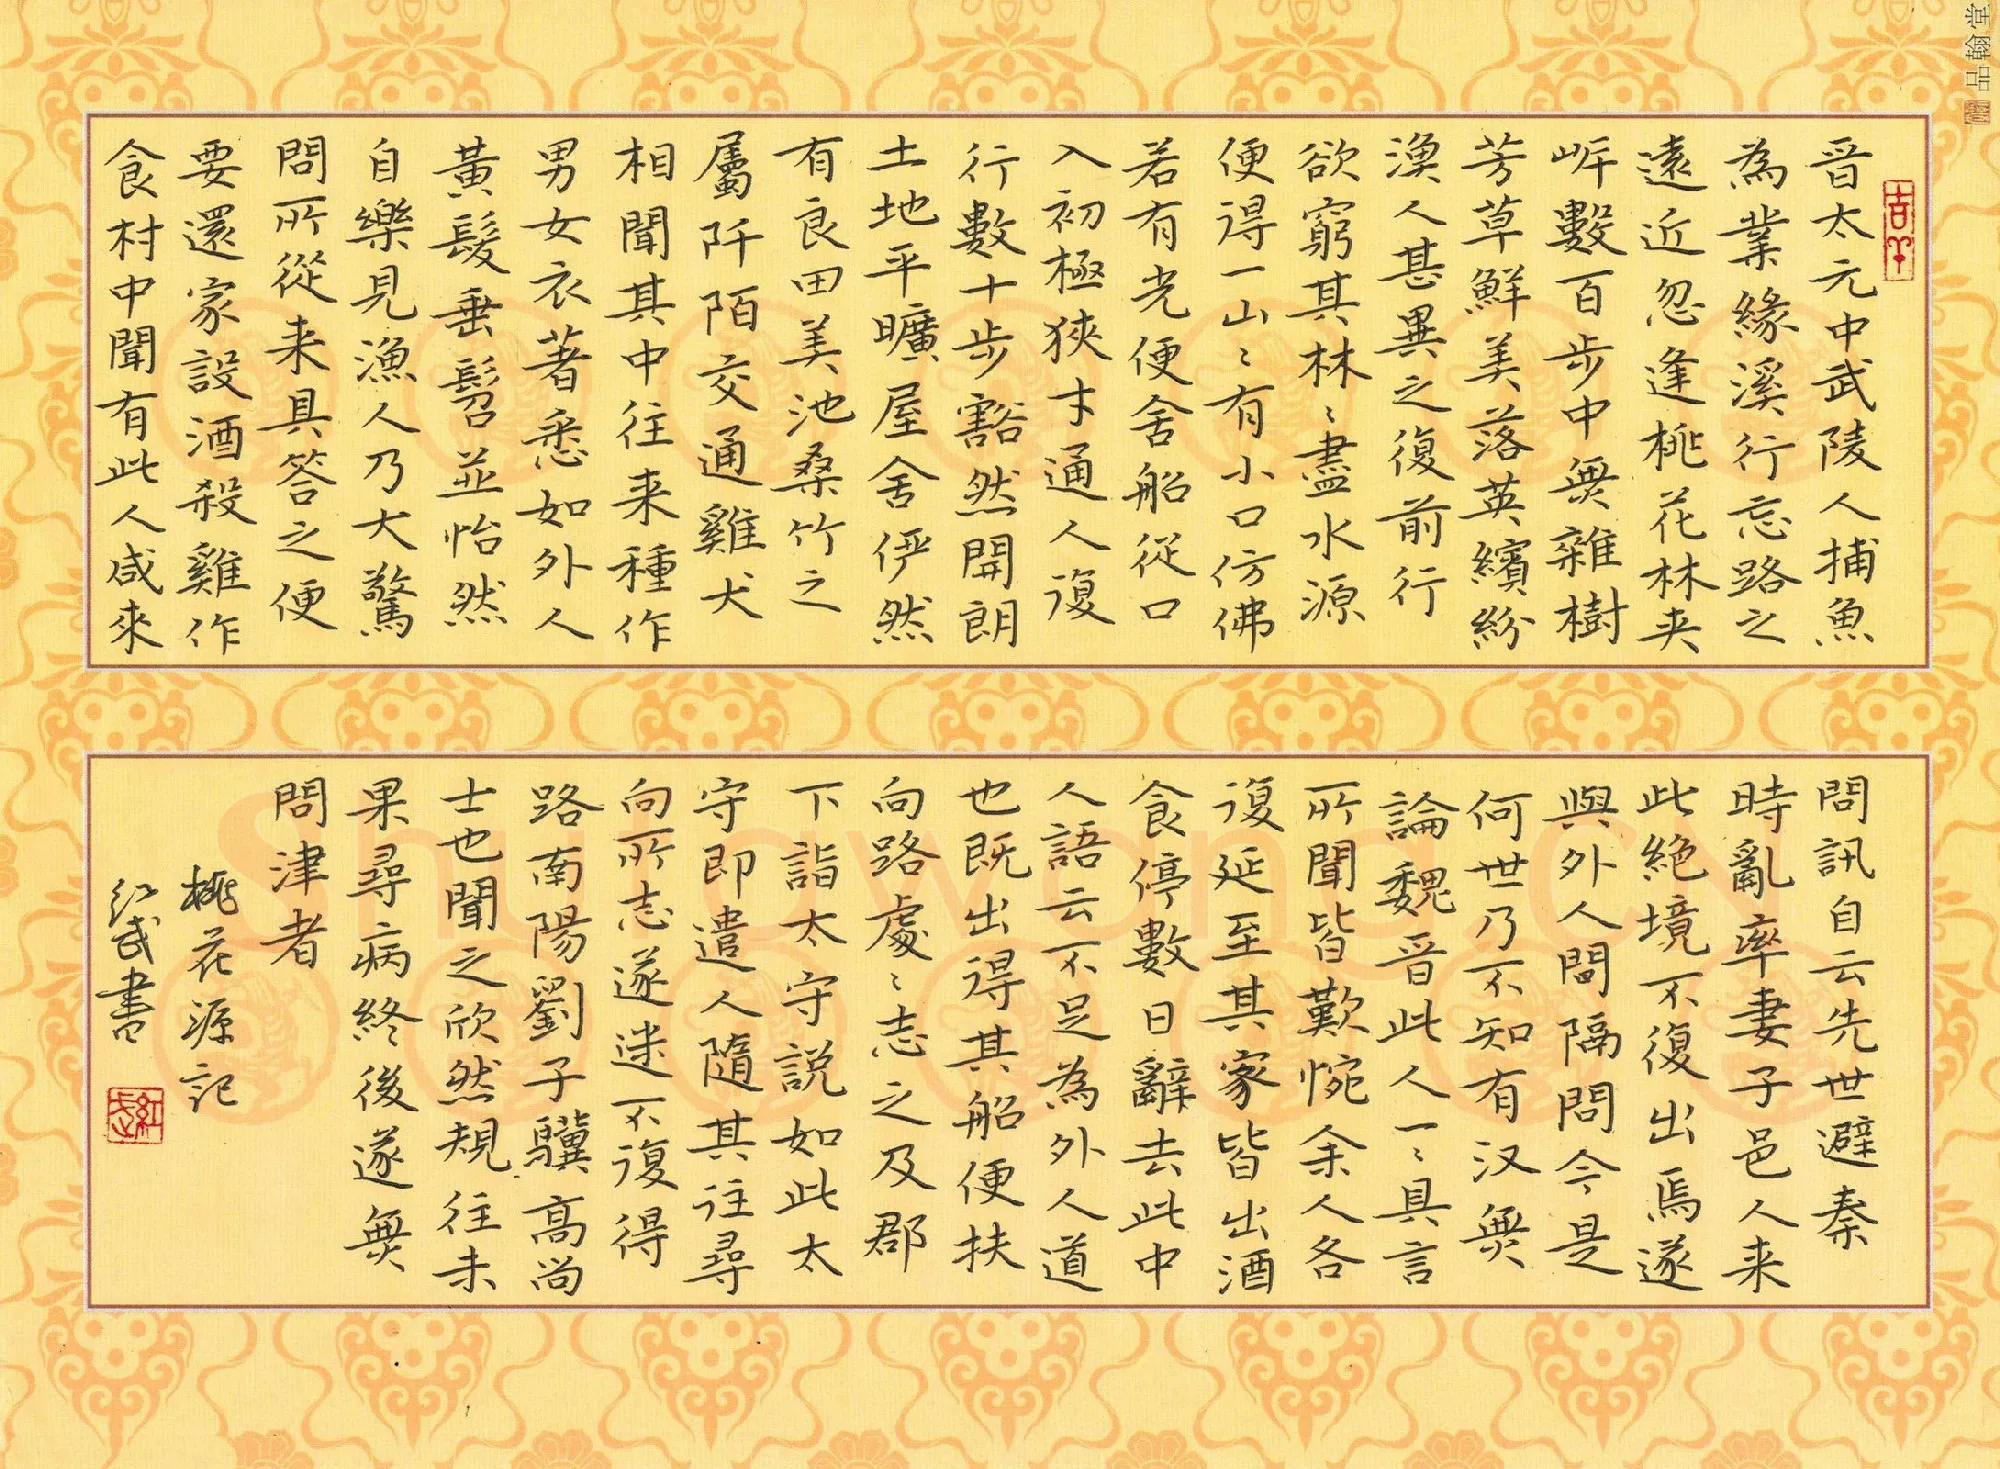 晋太元中武陵人捕魚
為業緣溪行忘路之
遠近忽逢桃花林夹
岸數百步中無雜樹
芳草鮮美落英繽紛
漁人甚異之復前行
欲窮其林〻盡水源
便得一山〻有小口仿佛
若有光便舍船從口
入初極狹才通人復
行數十步豁然開朗
土地平曠屋舍伊然
有良田美池桑竹之
屬阡陌交通雞犬
相聞其中往来種作
男女衣著悉如外人
黃髮垂髫並怡然
自樂見漁人乃大驚
問所從来具答之便
要還家設酒殺雞作
食村中聞有此人咸来
問訊自云先世避秦
時亂率妻子邑人来
此絕境不復出焉遂
與外人間隔問今是
何世乃不知有汉無
論魏晋此人一〻具言
所聞皆歎惋余人各
復延至其家皆出酒
食停數日辭去此中
人語云不足為外人道
也既出得其船便扶
向路處〻志之及郡
下詣太守説如此太
守即遣人隨其往尋
向所志遂迷不復得
路南陽劉子驥高尚
士也聞之欣然規往未
果尋病終後遂無
問津者
桃花源記
红武書
品翰堂
Shuawang.CN